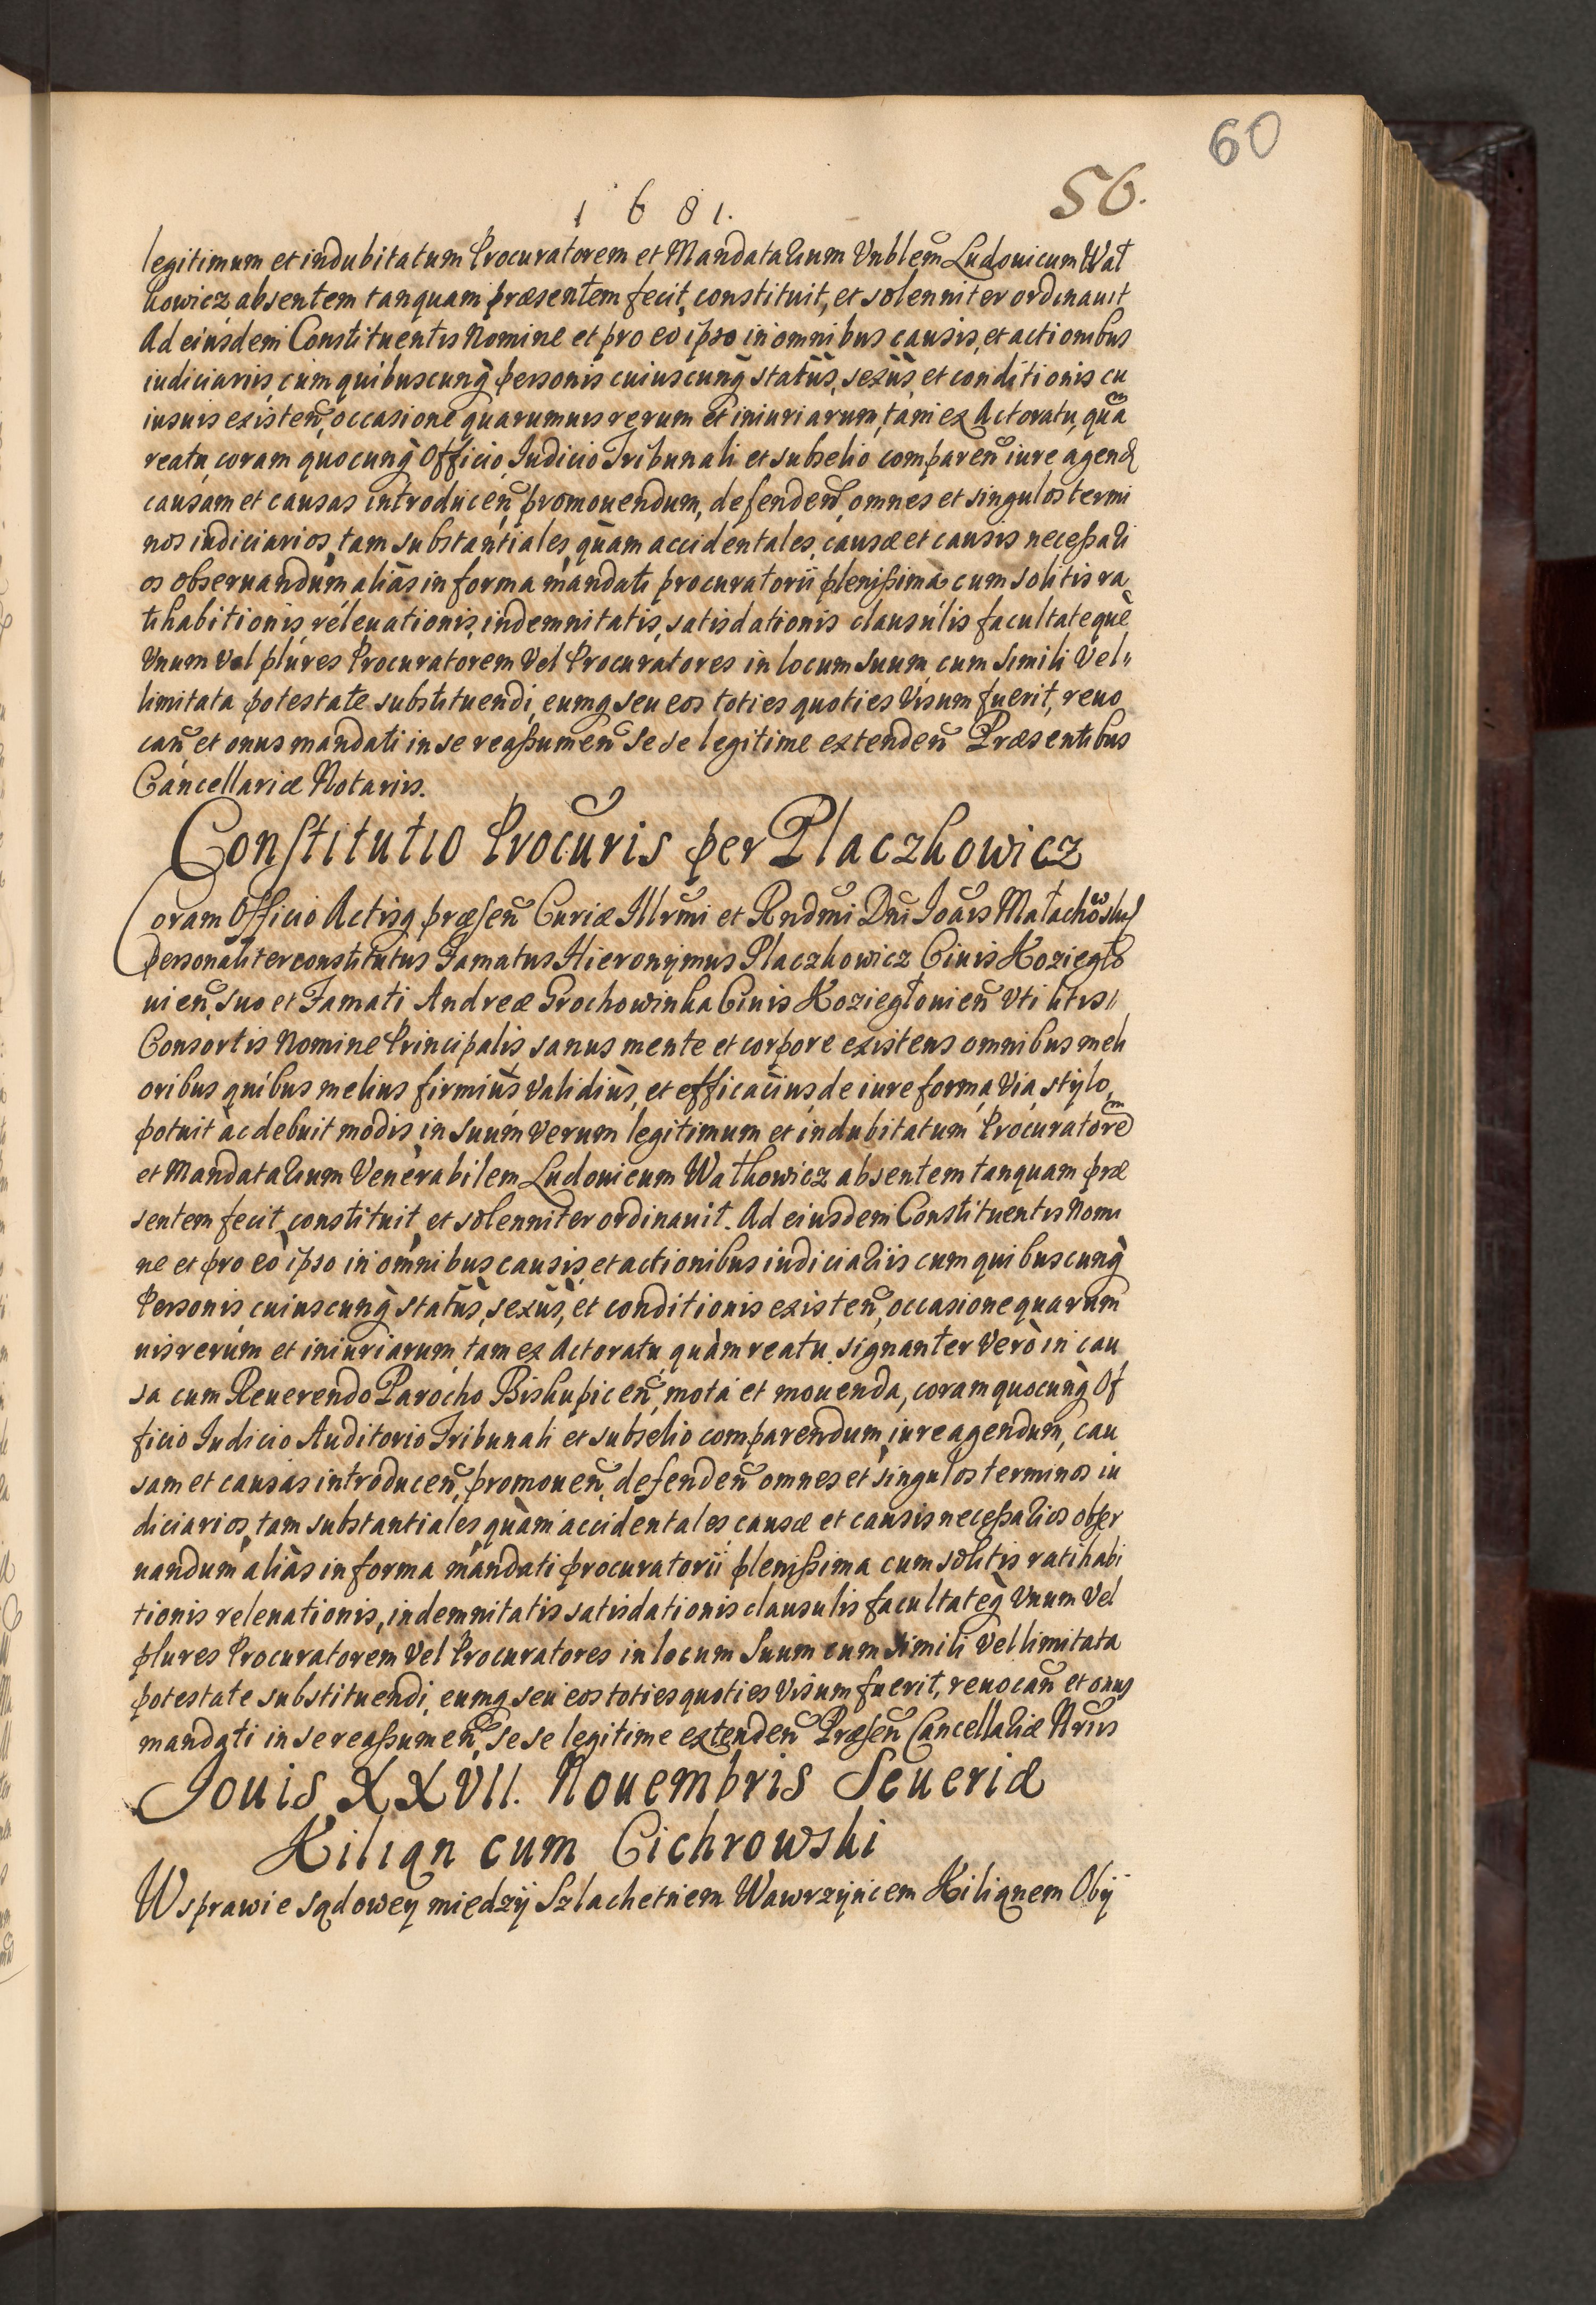 60
56.
1681.
legitimum et indubitatum Procuratorem et Mandatarium Vnblem̃ Ludouicum Wat
kowicz absentem tanquam præsentem fecit, constituit, et solenniter ordinauit
Ad eiusdem Constituentis Nomine et pro eo ipso in omnibus causis, et actionibus
iudiciariis, cum quibuscunq̀ personis cuiuscunq̀ statûs, sexûs, et conditionis cu
iusuis existeñ, occasione quarumuis rerum et iniuriarum, tam ex Actoratu, quã
reatu coram quocunq̀ Officio, Iudicio Tribunali et subselio compareñ iure agend
causam et causas introduceñ, promouendum, defendeñ, omnes et singulos termi
nos iudiciarios, tam substantiales, quàm accidentales, causæ et causis neceßari
os obseruandum aliàs in forma mandati procuratorii plenißima cum solitis ra
tihabitionis, releuationis, indemnitatis, satisdationis clausulis facultateque
Vnum Vel plures Procuratorem Vel Procuratores in locum suum, cum simili Vel
limitata potestate substituendi, eumq seu eos toties quoties Visum fuerit, reuo
cañ et onus mandati in se reaßumeñ Sese legitime extendeñ Præsentibus
Cancellariæ Notariis.
Constitutio Procũris per Placzkowicz
Coram Officio Actisq præseñ Curiæ Illrm̃i et Rndm̃i Dñi Ioañis Małachowski
personaliter constitutus Famatus Hieronymus Placzkowicz Ciuis Koziegło
uieñ, suo et Famati Andreæ Grochowinka Ciuis Kozieglouieñ Vti litis
Consortis Nomine Principalis, sanus mente et corpore existens omnibus meli
oribus quibus melius firmiùs validiùs, et efficaciùs de iure forma, Via, stylo,
potuit ac debuit modis, in suum verum legitimum et indubitatum Procuratorem
et Mandatarium Venerabilem Ludouicum Watkowicz absentem tanquam præ
sentem fecit, constituit, et solenniter ordinauit. Ad eiusdem Constituentis Nomi
ne et pro eo ipso in omnibus causis, et actionibus iudiciariis cum quibuscunq̀
Personis, cuiuscunq̀ statûs, sexûs, et conditionis existeñ, occasione quarum
uis rerum et iniuriarum, tam ex Actoratu, quàm reatu, signanter Verò in cau
sa cum Reuerendo Parocho Biskupiceñ, mota et mouenda, coram quocunq̀ Of
ficio Iudicio Auditorio Tribunali et subselio comparendum, iure agendum, cau
sam et causas introduceñ, promoueñ, defendeñ omnes et singulos terminos iu
diciarios, tam substantiales, quàm accidentales, causæ et causis neceßarios obser
uandum aliàs in forma mandati procuratorii plenißima cum solitis ratihabi
tionis releuationis, indemnitatis satisdationis clausulis facultateq̀ Vnum Vel
plures Procuratorem Vel Procuratores in locum Suum cum simili Vel limitata
potestate substituendi, eumq seu eos toties quoties Visum fuerit, reuocañ et onus
mandati in se reaßumeñ, Sese legitime extendeñ Præseñ Cancellariæ Nr̃iis
Jouis XXVII. Nouembris Seueriæ
Kilian cum Cichrowski
W sprawie sądowey między Szlachetnem Wawrzyńcem Kilianem Oby